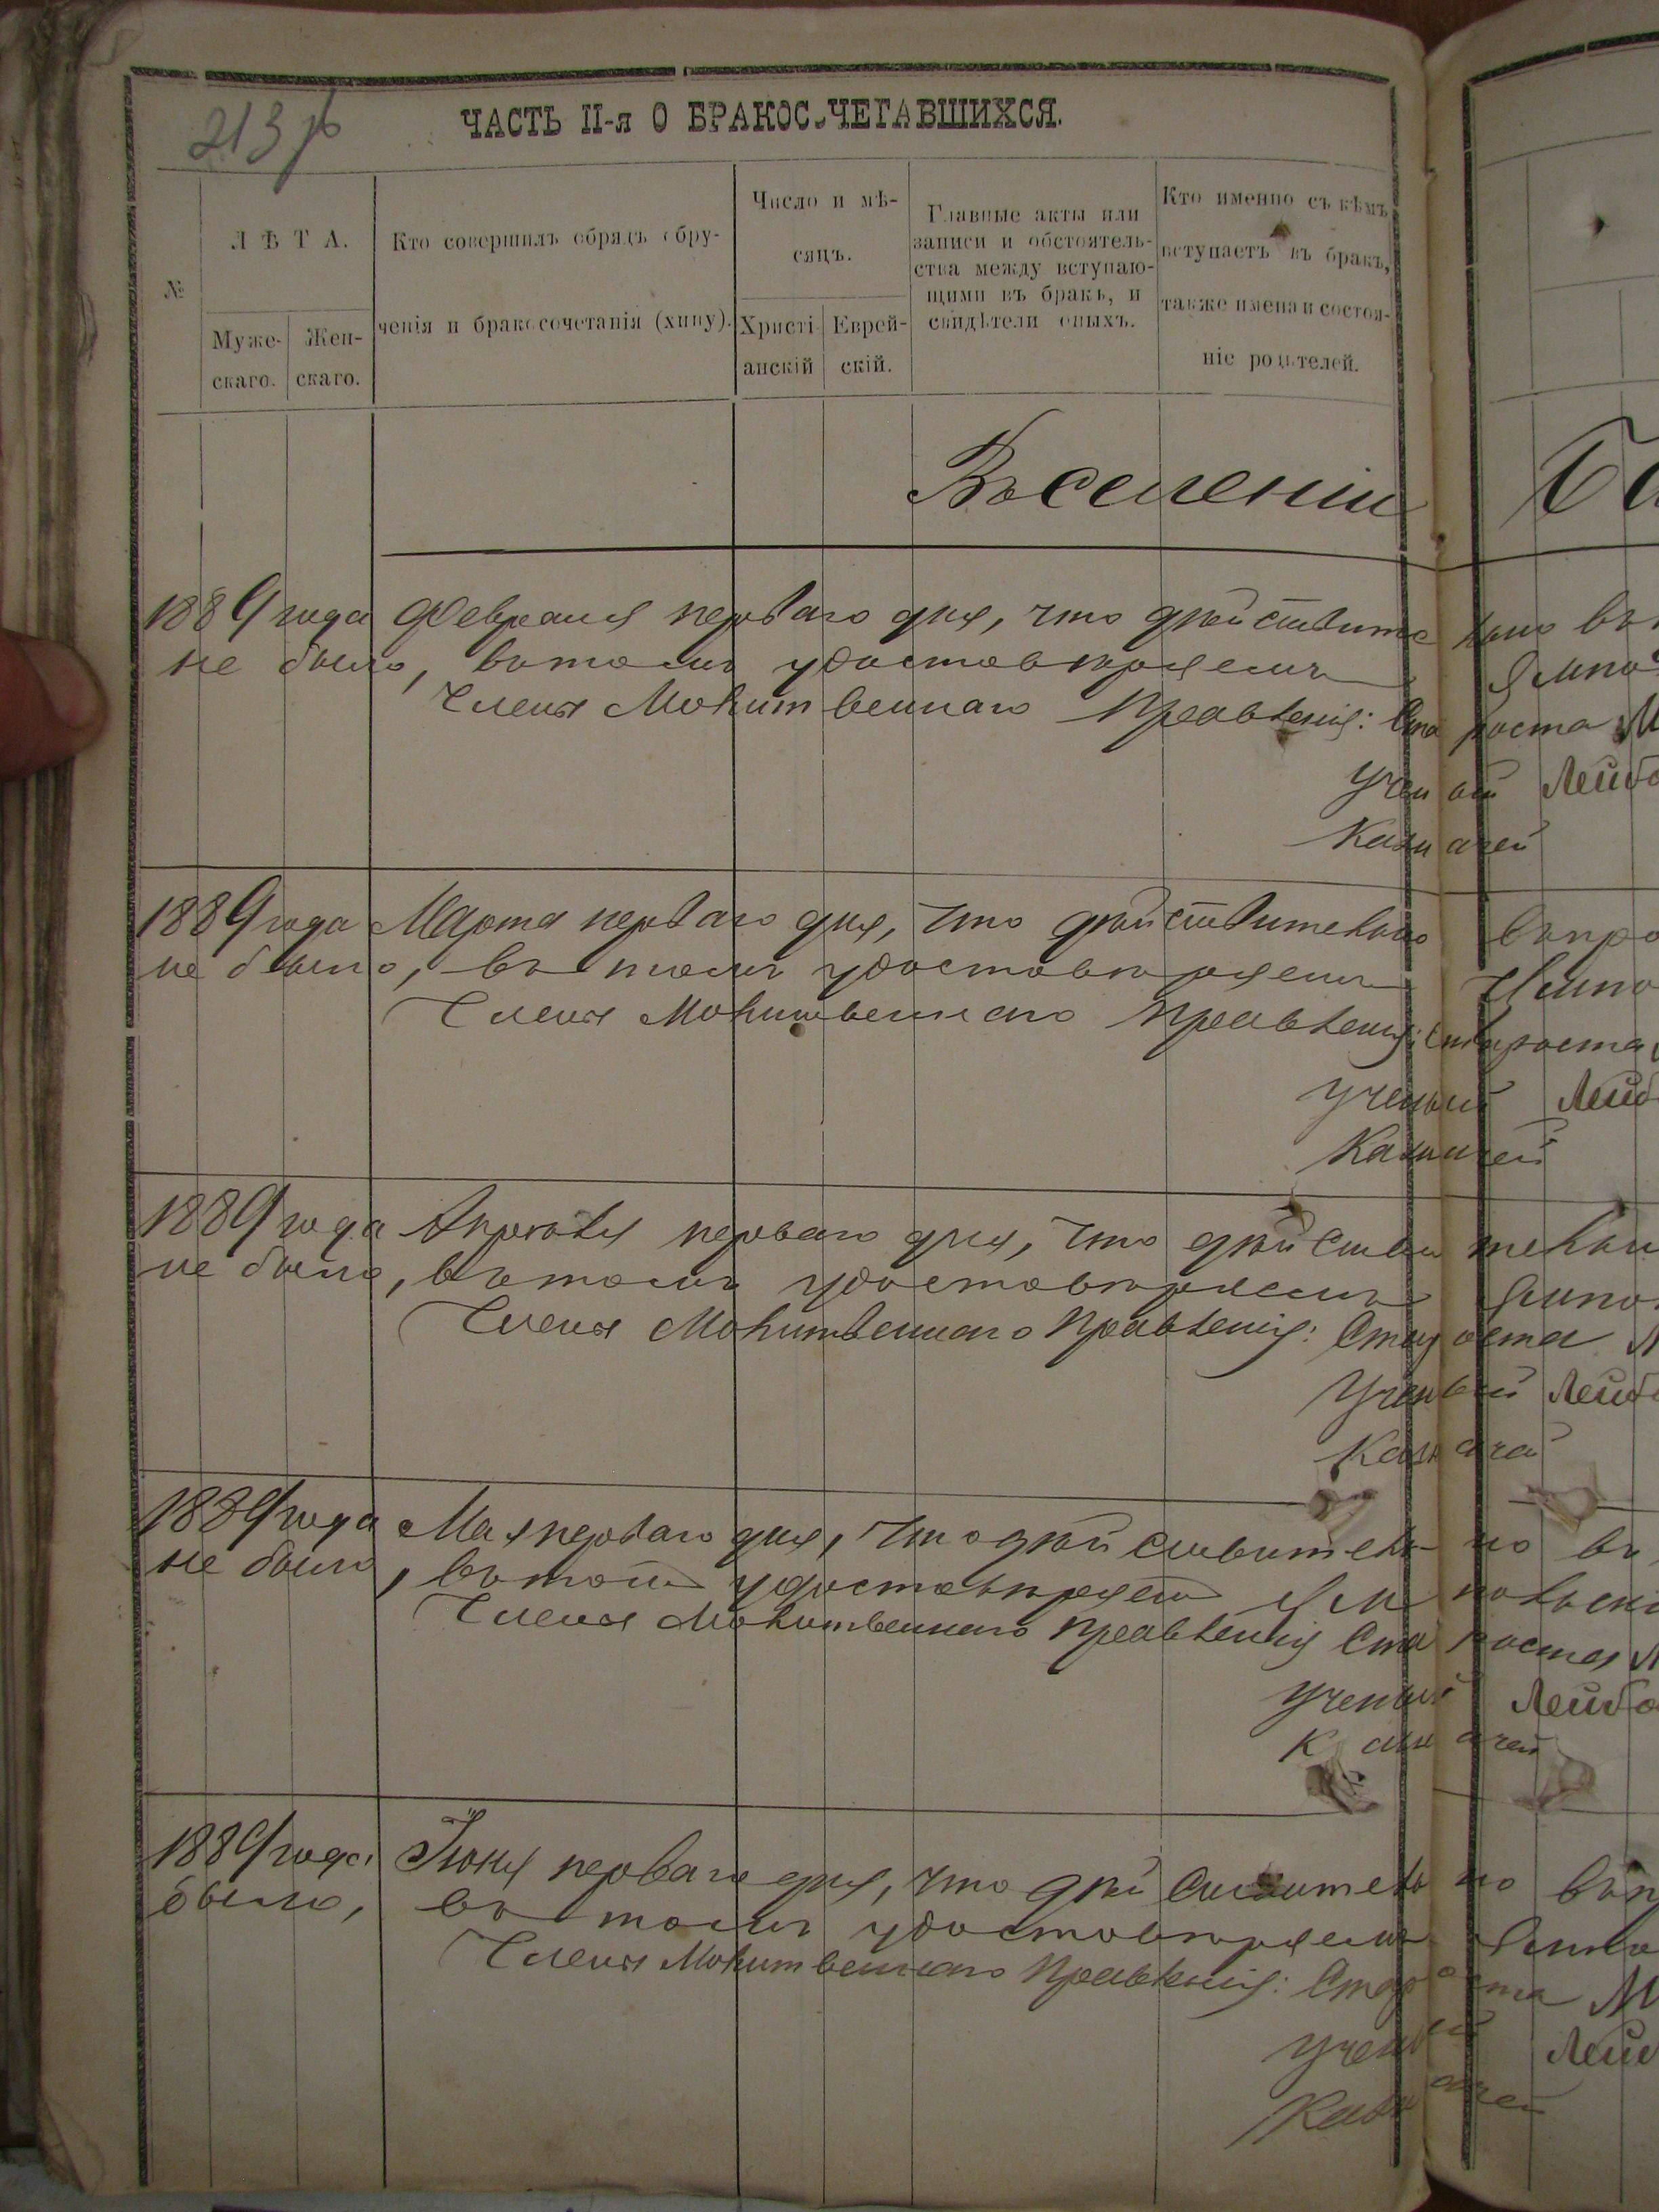 213 об
ЧАСТЬ II-я О БРАКОСОЧЕТАВШИХСЯ.
№
ЛѢТА.
Муже-
скаго.
Жен-
скаго.
Кто совершилъ обрядъ обру-
ченія и бракосочетанія (хипу).
Число и мѣ-
сяцъ.
Христі-
анскій
Еврей-
скій.
Главные акты или
записи и обстоятель-
ства между вступаю-
щими въ бракъ, и
свидѣтели оныхъ.
Кто именно съ кѣмъ
вступаетъ въ бракъ,
также имена и состоя-
ніе родителей.
Въ селеніи
1889 года Февраля перваго дня, что дѣйствительно въ
не было, въ томъ удостовѣряемъ
Члены Молитвеннаго Правленія: Староста М
Ученый Лейб
Казначей
1889 года Марта перваго дня, что дѣйствительно въ про
не было, въ томъ удостовѣряемъ
Члены Молитвеннаго Правленія: Староста
Ученый Лейб
Казначей
1889 года Апрѣля перваго дня, что дѣйствительн
не было, въ томъ удостовѣряемъ
Члены Молитвеннаго Правленія: Староста М
Ученый Лейб
Казначей
1889 года Мая перваго дня, что дѣйствительно въ
не было, въ томъ удостовѣряемъ
Члены Молитвеннаго Правленія Староста М
Ученый Лейб
Казначей
1889 года Іюня перваго дня, что дѣйствительно въ
было, въ томъ удостовѣряемъ
Члены Молитвеннаго Правленія: Староста М
Ученый Лей
Казначей